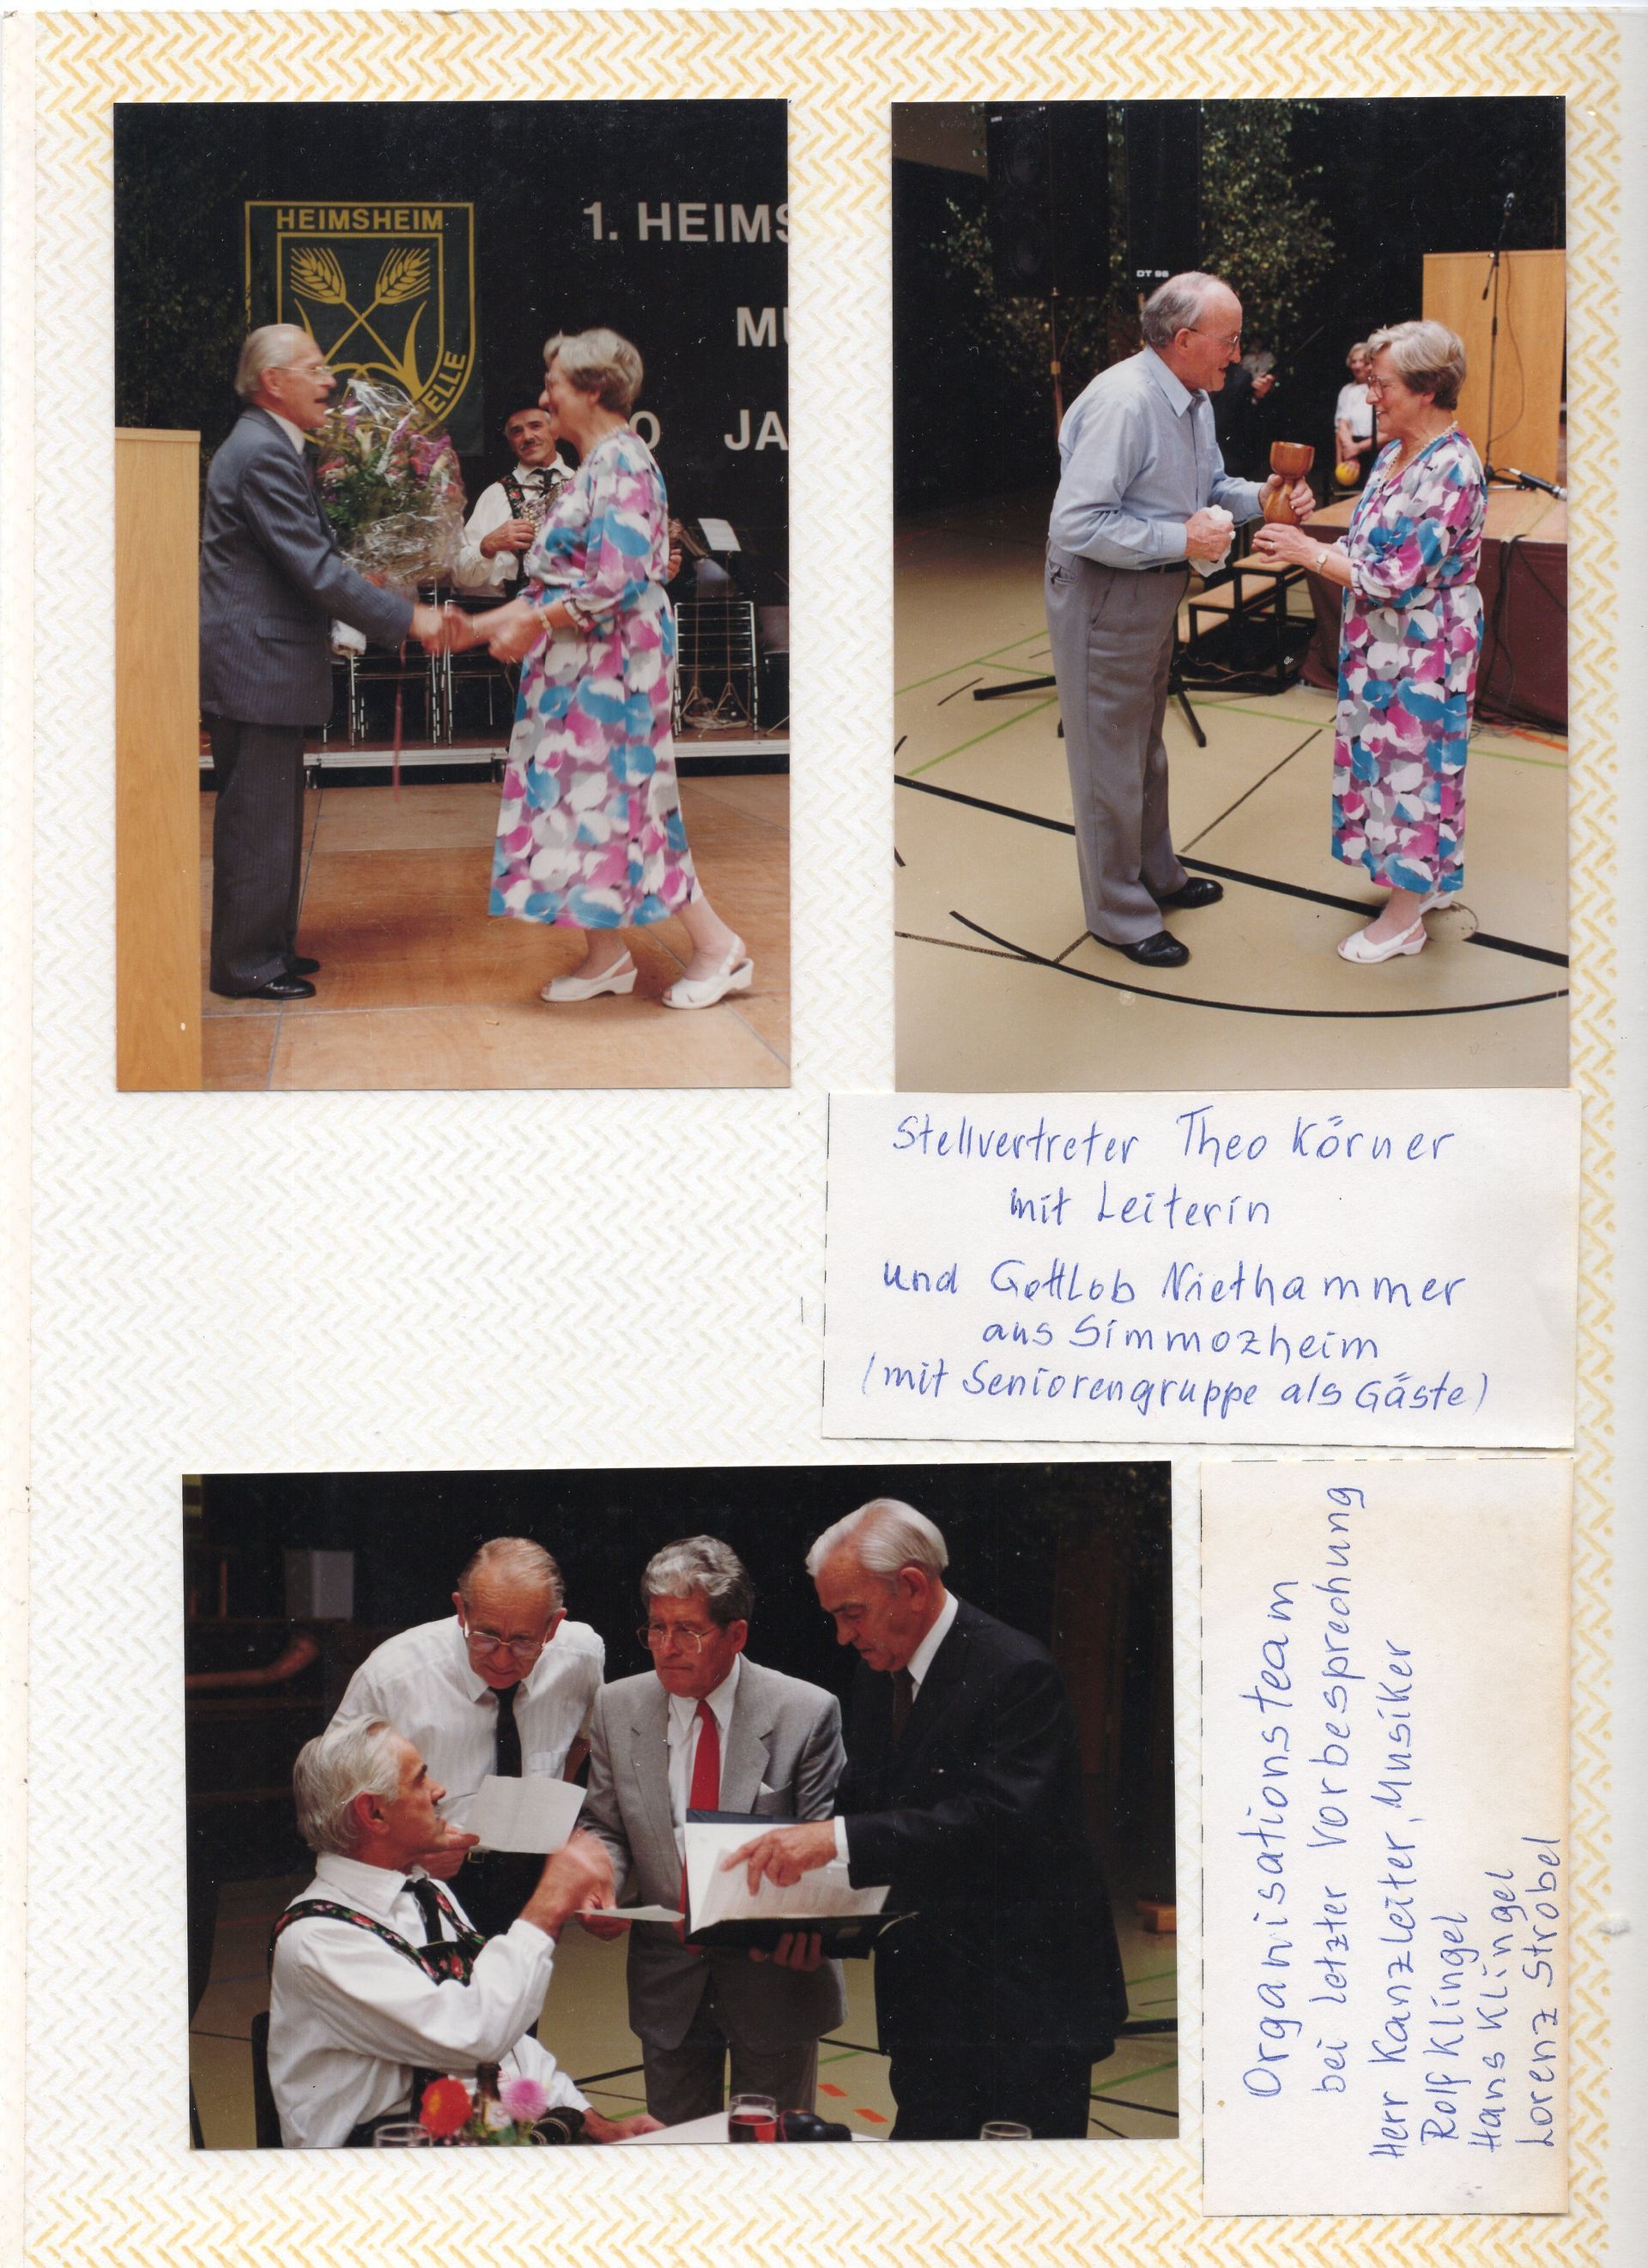 HEIMSHEIM
ELLE
1. HEIMS
MU
0 JA
DT 98
Stellvertreter Theo Körner
mit Leiterin
und Gottlob Niethammer
aus Simmozheim
(mit Seniorengruppe als Gäste)
Organisationsteam
bei letzter Vorbesprechung
Herr Kanzleiter, Musiker
Rolf Klingel
Hans Klingel
Lorenz Strobel